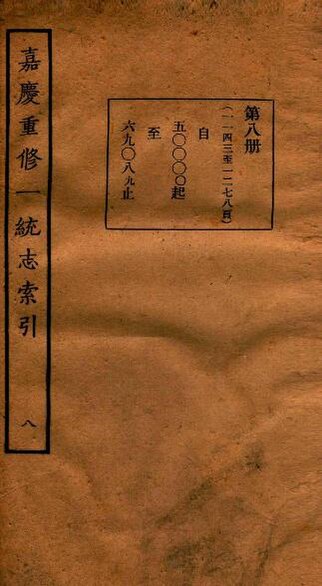 嘉慶重修一統志索引 八
第八册
(一一四三至一二七八頁)
自
五〇〇〇〇起
至
六九〇八九止